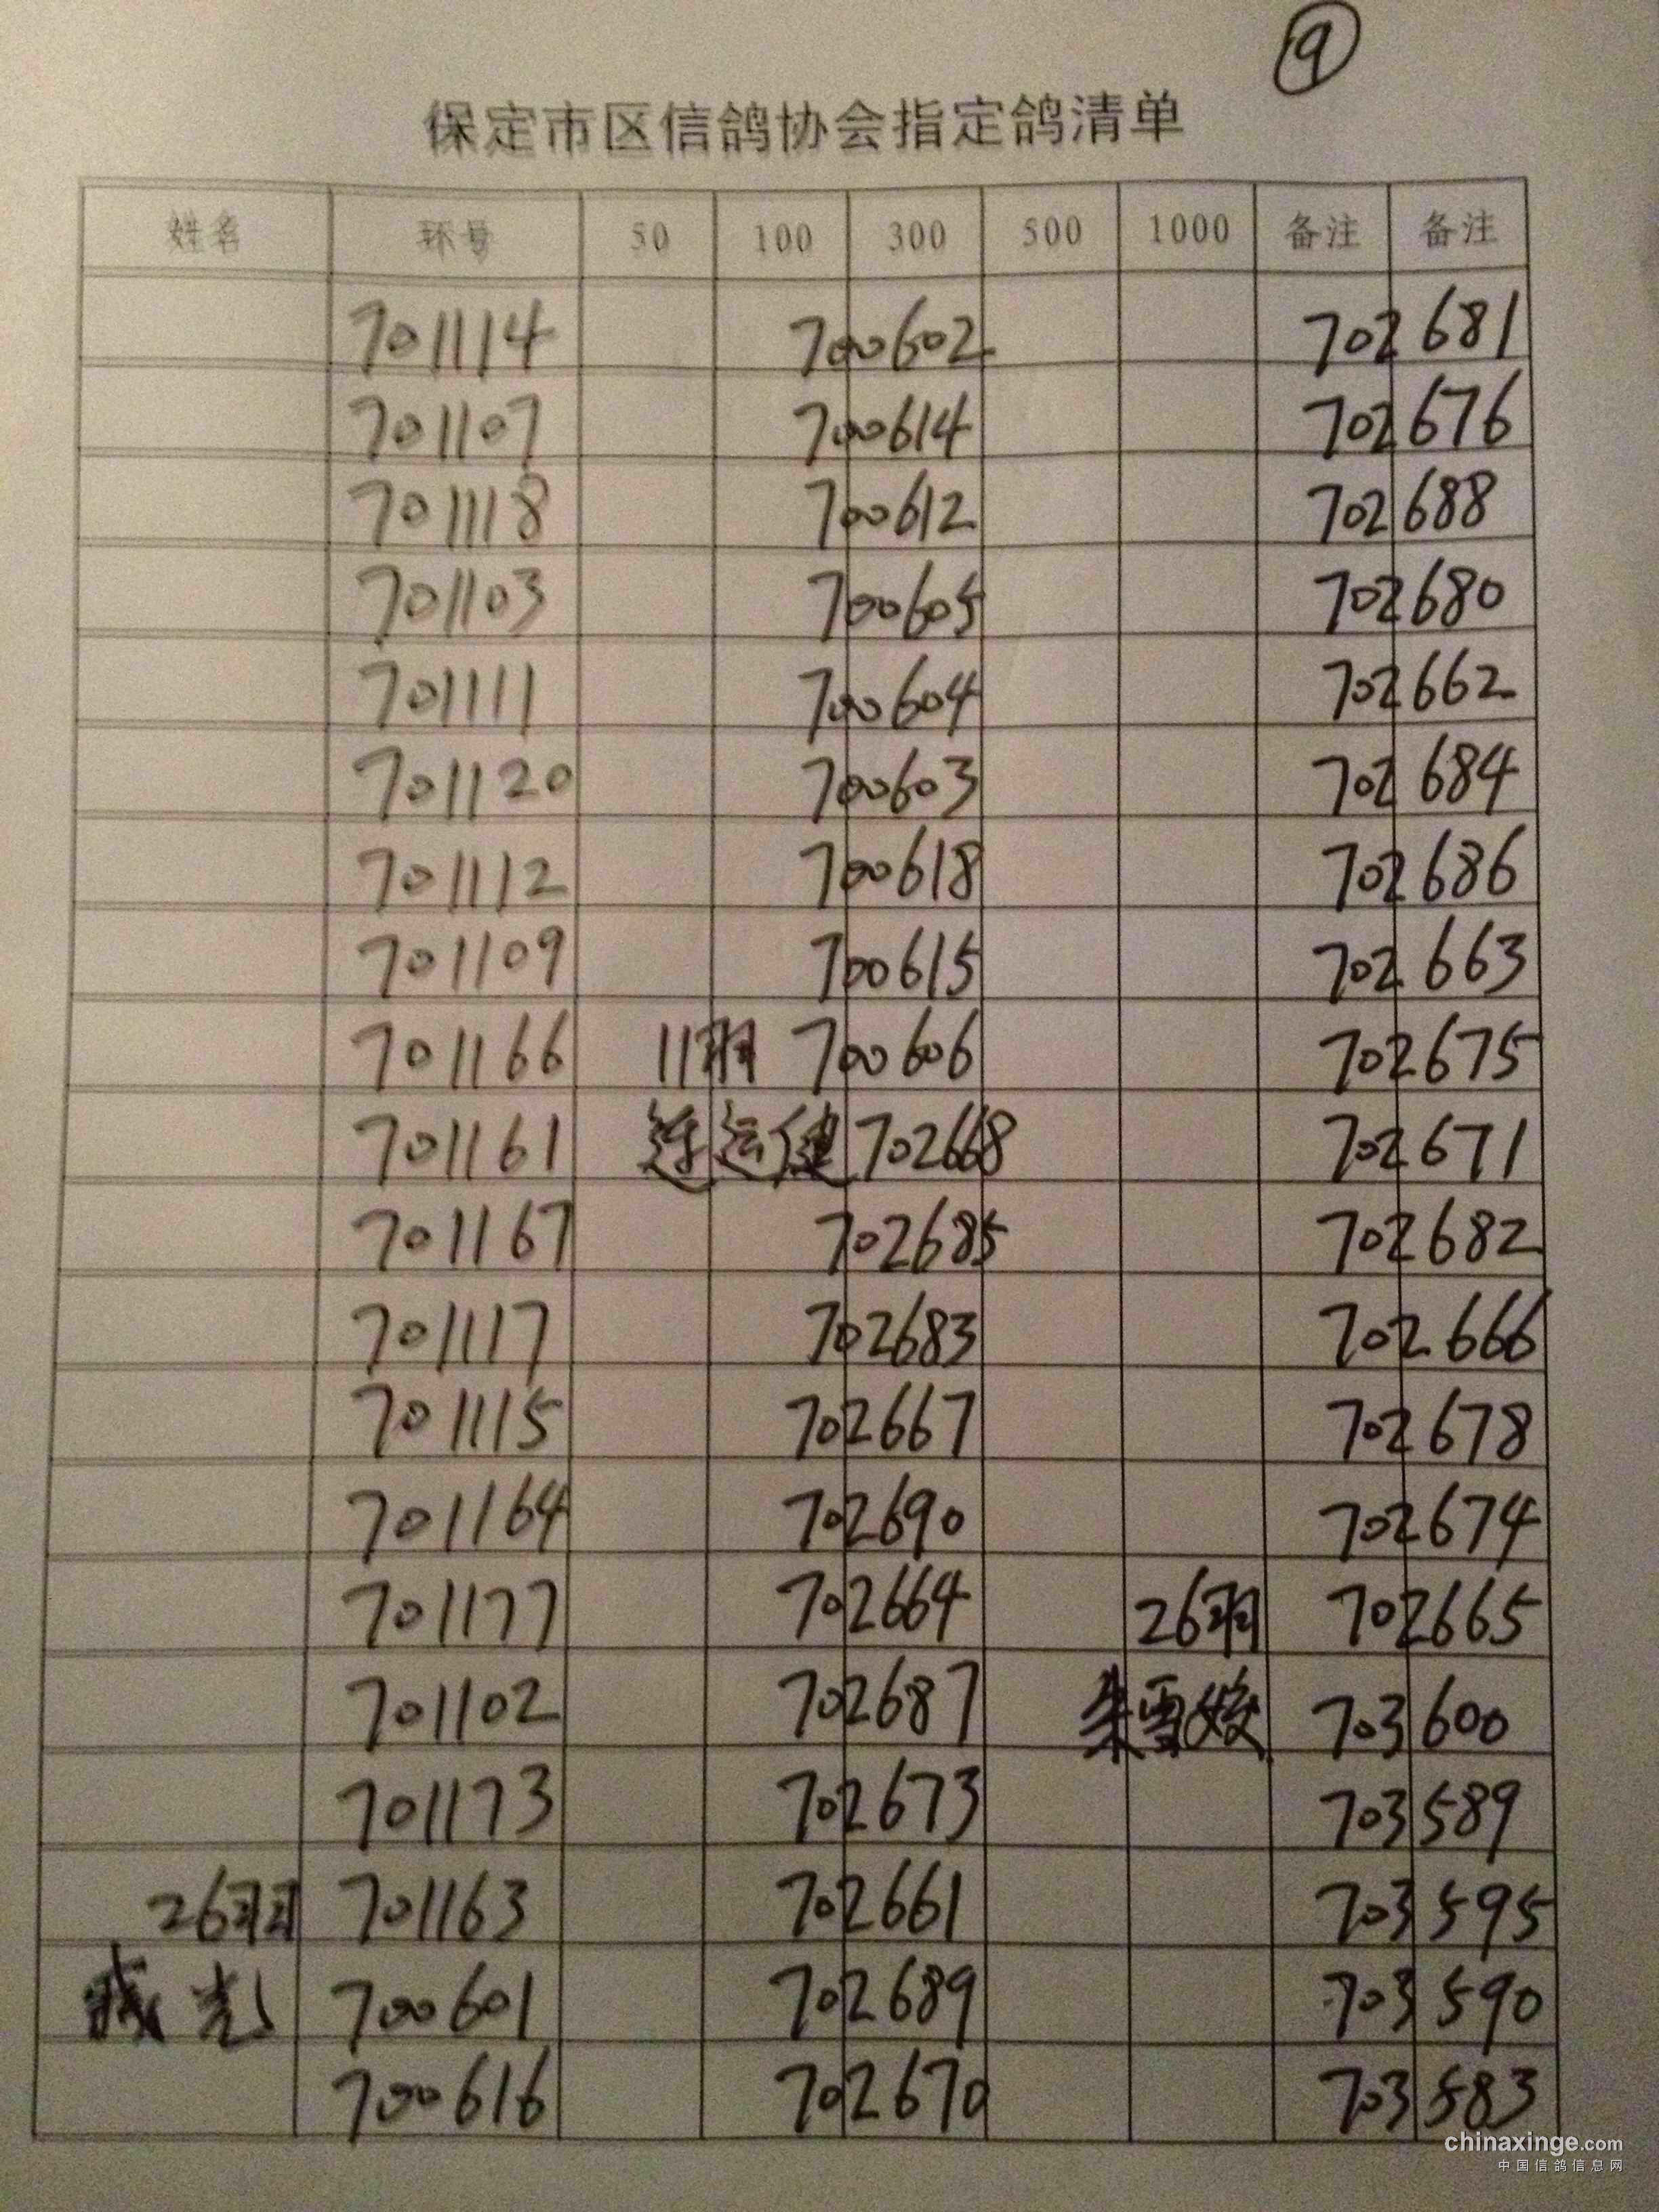 9
保定市区信鸽协会指定鸽清单
姓名 环号 50 100 300 500 1000 备注 备注
701114 700602 702681
701107 700614 702676
701118 700612 702688
701103 700605 702680
701111 700604 702662
701120 700603 702684
701112 700618 702686
701109 700615 702663
701166 11羽 700606 702675
701161 连运健 702668 702671
701167 702685 702682
701117 702683 702666
701115 702667 702678
701164 702690 702674
701177 702664 26羽 702665
701102 702687 朱雪姣 703600
701173 702673 703589
26羽 701163 702661 703595
700601 702689 703590
700616 702670 703583
chinaxinge.com
中国信鸽信息网